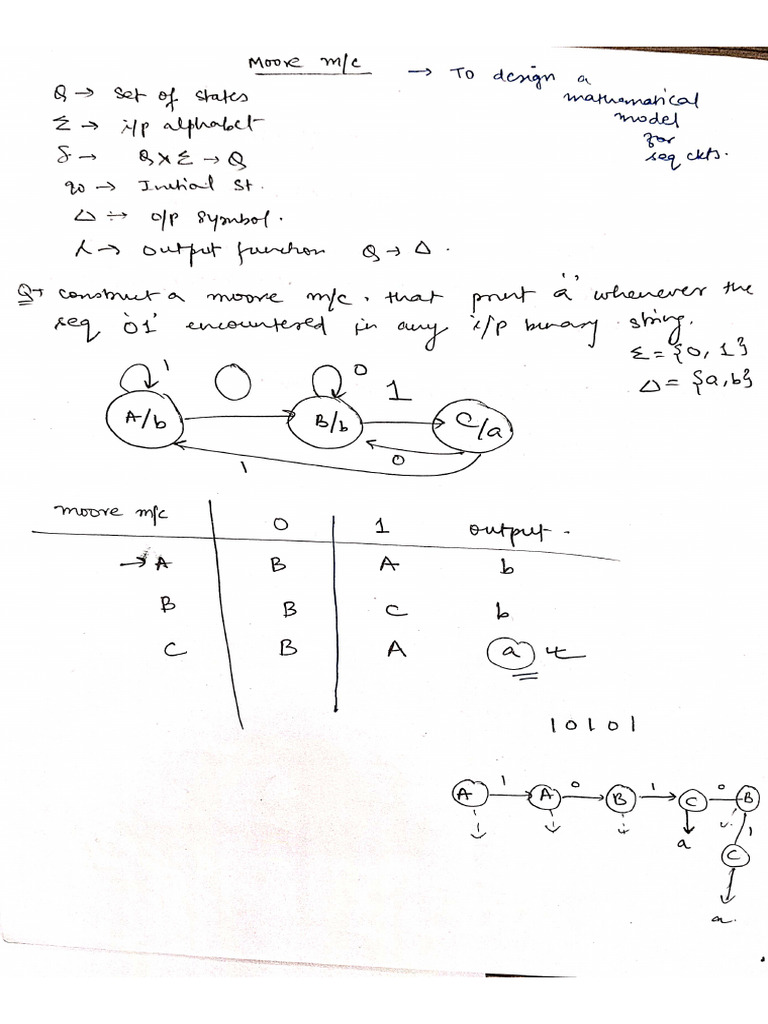 Moore m/c → To design a
mathematical
model
for
seq ckts.
Q → set of states
Σ → i/p alphabet
δ → Q×Σ → Q
q0 → Initial St.
Δ → o/p symbol.
λ → output function Q → Δ.
Q→ construct a moore m/c, that print 'a' whenever the
seq '01' encountered in any i/p binary string.
Σ = {0, 1}
Δ = {a, b}
1 0 0 1
A/b B/b C/a
1 0
moore m/c 0 1 output.
→ A B A b
B B C b
C B A a
10101
1 0 1 0
A A B C B
1
a C
a.